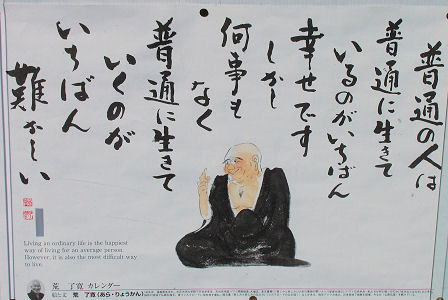 普通の人は
普通に生きて
いるのがいちばん
幸せです
しかし
何事も
なく
普通に生きて
いくのが
いちばん
難かしい
Living an ordinary life is the happiest
way of living for an average person.
However, it is also the most difficult way
to live.
荒 了寛 カレンダー
絵と文 荒 了寛(あら・りょうかん)